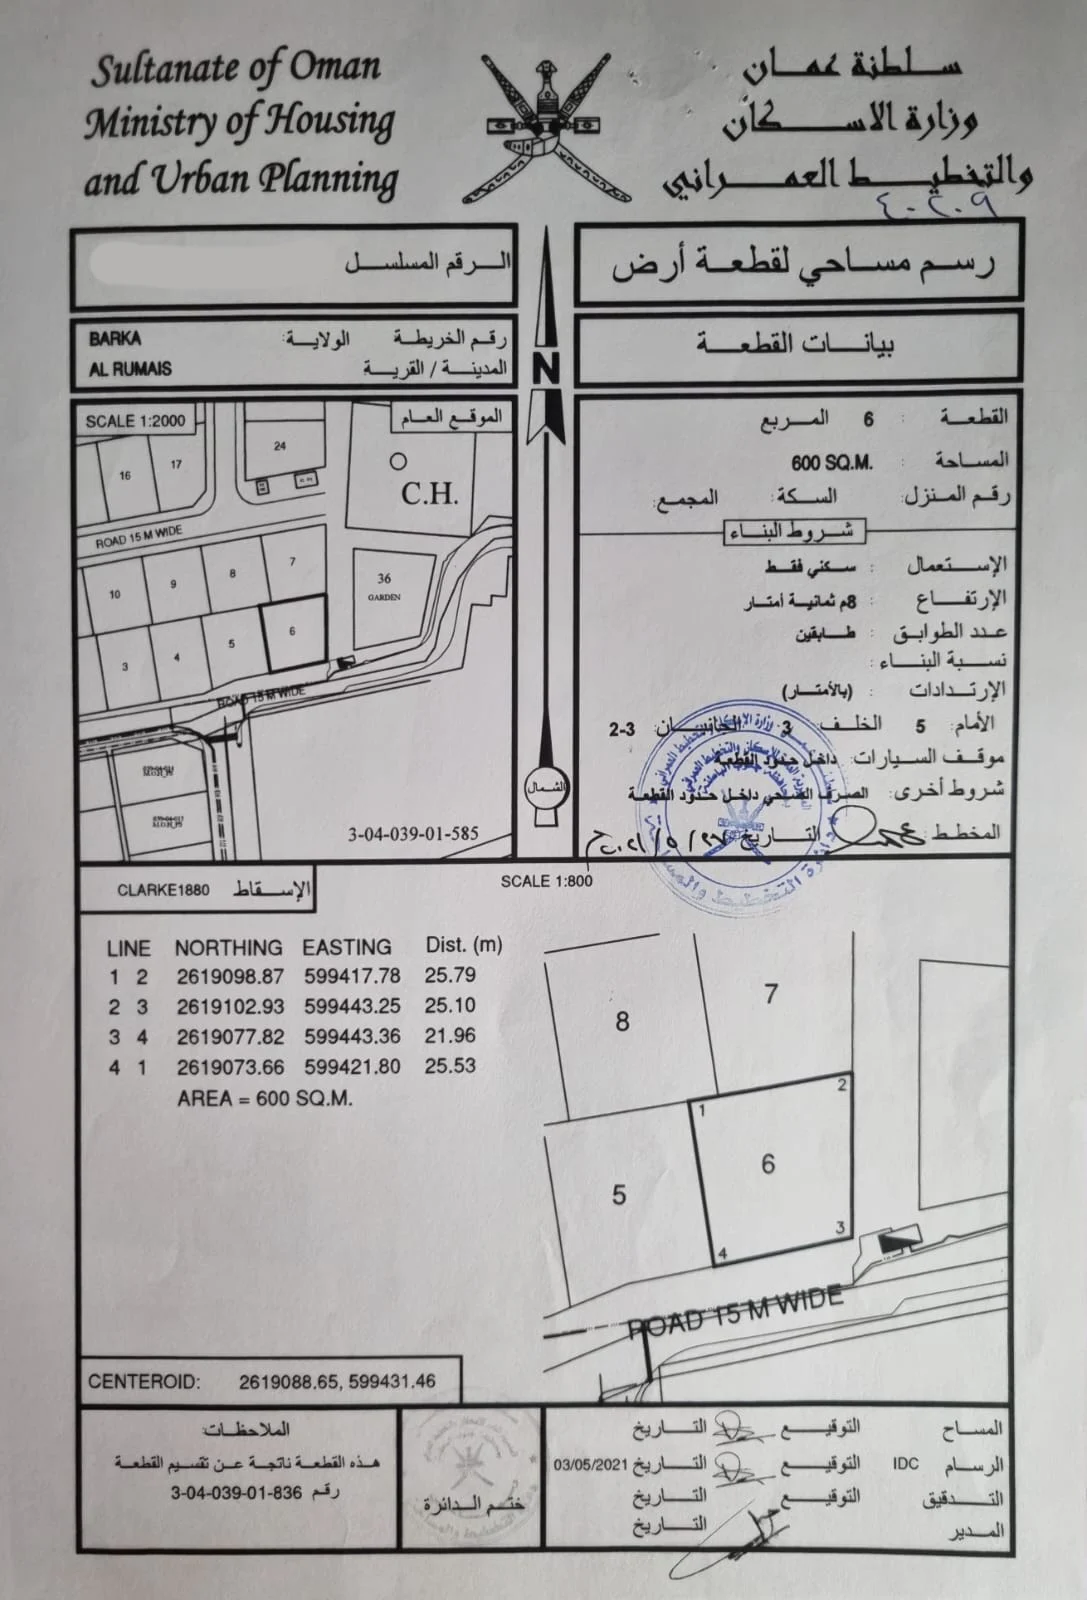 Sultanate of Oman
Ministry of Housing
and Urban Planning
سلطنة عمان
وزارة الاسكان
والتخطيط العمراني
٤٠٢٠٩
الرقم المسلسل
رسم مساحي لقطعة أرض
BARKA الولاية: رقم الخريطة
AL RUMAIS المدينة / القرية
بيانات القطعة
N
الشمال
SCALE 1:2000
الموقع العام
16
17
24
C.H.
ROAD 15 M WIDE
10
9
8
7
36
GARDEN
3
4
5
6
ROAD 15 M WIDE
3-04-039-01-585
القطعة : 6 المربع
المساحة : 600 SQ.M.
رقم المنزل: السكة: المجمع:
شروط البناء
الإستعمال : سكني فقط
الإرتفاع : 8م ثمانية أمتار
عدد الطوابق : طابقين
نسبة البناء :
الإرتدادات : (بالأمتار)
الأمام: 5 الخلف: 3 الجانبان: 2-3
موقف السيارات: داخل حدود القطعة
شروط أخرى: الصرف الصحي داخل حدود القطعة
المخطط : التاريخ ٢٠٢١/٥/٢٧م
CLARKE1880 الإسقاط
SCALE 1:800
LINE NORTHING EASTING Dist. (m)
1 2 2619098.87 599417.78 25.79
2 3 2619102.93 599443.25 25.10
3 4 2619077.82 599443.36 21.96
4 1 2619073.66 599421.80 25.53
AREA = 600 SQ.M.
8
7
1
2
6
5
3
4
ROAD 15 M WIDE
CENTEROID: 2619088.65, 599431.46
الملاحظات:
هذه القطعة ناتجة عن تقسيم القطعة
رقم 3-04-039-01-836
ختم الدائرة
المساح التوقيع التاريخ
الرسام IDC التوقيع التاريخ 03/05/2021
التدقيق التوقيع التاريخ
المدير التاريخ